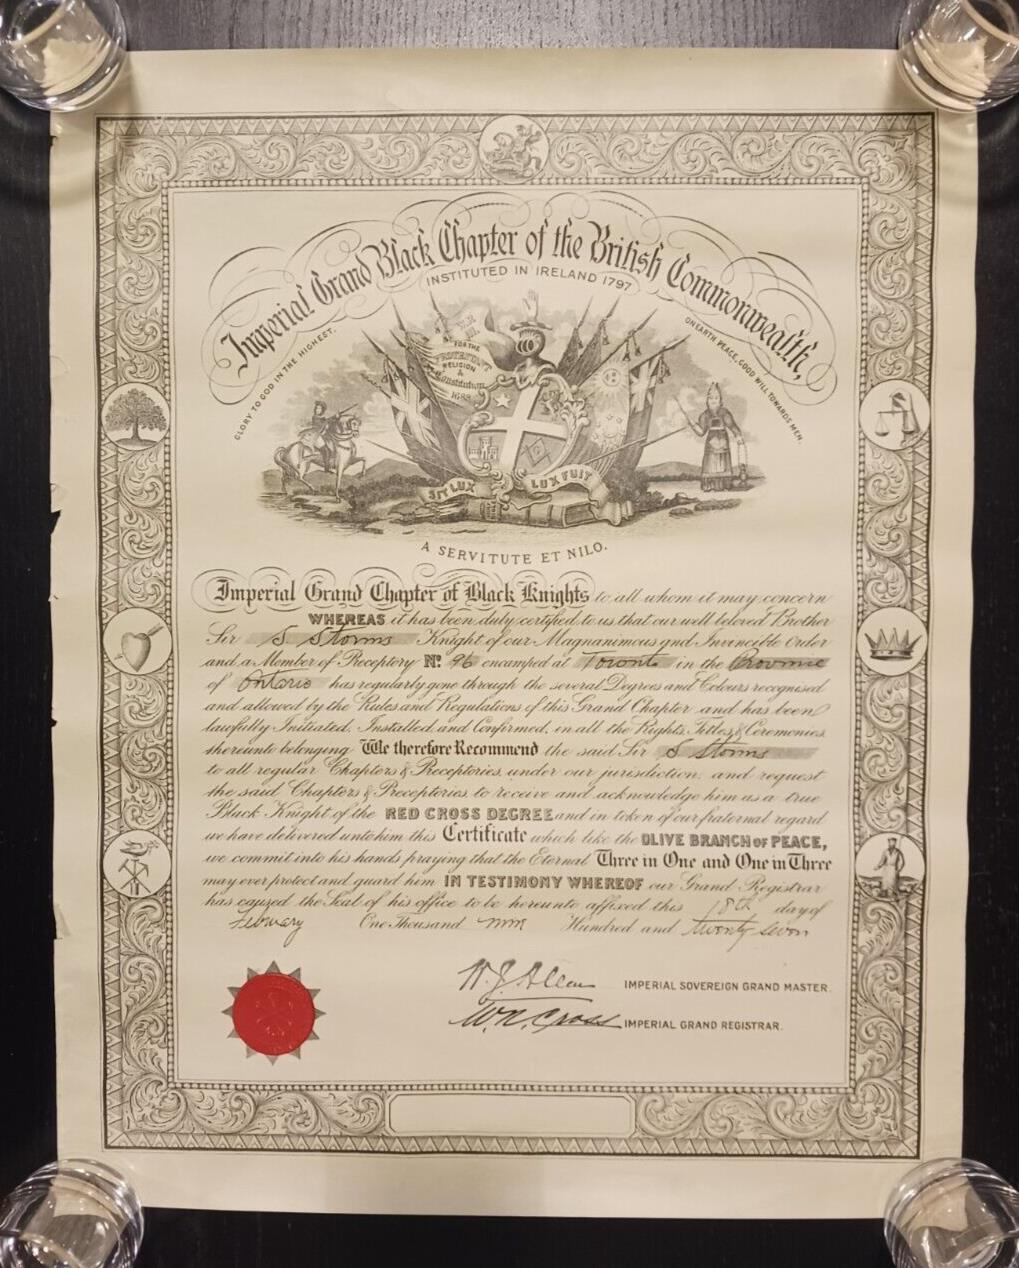 Imperial Grand Black Chapter of the British Commonwealth,
INSTITUTED IN IRELAND 1797
GLORY TO GOD IN THE HIGHEST.
ON EARTH PEACE, GOOD WILL TOWARDS MEN.
FOR THE
PROTESTANT
RELIGION
&
Constitution
1688
SIT LUX LUX FUIT
A SERVITUTE ET NILO.
Imperial Grand Chapter of Black Knights to all whom it may concern
WHEREAS it has been duly certified to us that our well beloved Brother
Sir S Storms Knight of our Magnanimous and Invincible Order
and a Member of Preceptory No. 96 encamped at Toronto in the Province
of Ontario has regularly gone through the several Degrees and Colours recognised
and allowed by the Rules and Regulations of this Grand Chapter and has been
lawfully Initiated, Installed and Confirmed, in all the Rights, Titles, & Ceremonies
thereunto belonging We therefore Recommend the said Sir S Storms
to all regular Chapters & Preceptories, under our jurisdiction, and request
the said Chapters & Preceptories, to receive and acknowledge him as a true
Black Knight of the RED CROSS DEGREE and in token of our fraternal regard
we have delivered unto him this Certificate which like the OLIVE BRANCH OF PEACE,
we commit into his hands praying that the Eternal Three in One and One in Three
may ever protect and guard him IN TESTIMONY WHEREOF our Grand Registrar
has caused the Seal of his office to be hereunto affixed this 18th day of
One Thousand nine Hundred and twenty seven
IMPERIAL SOVEREIGN GRAND MASTER.
W.N. Cross IMPERIAL GRAND REGISTRAR.